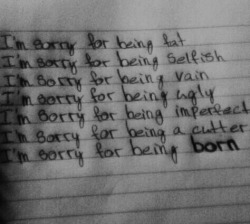 I'm sorry for being fat
I'm sorry for being selfish
I'm sorry for being vain
I'm sorry for being ugly
I'm sorry for being imperfect
I'm sorry for being a cutter
I'm sorry for being born